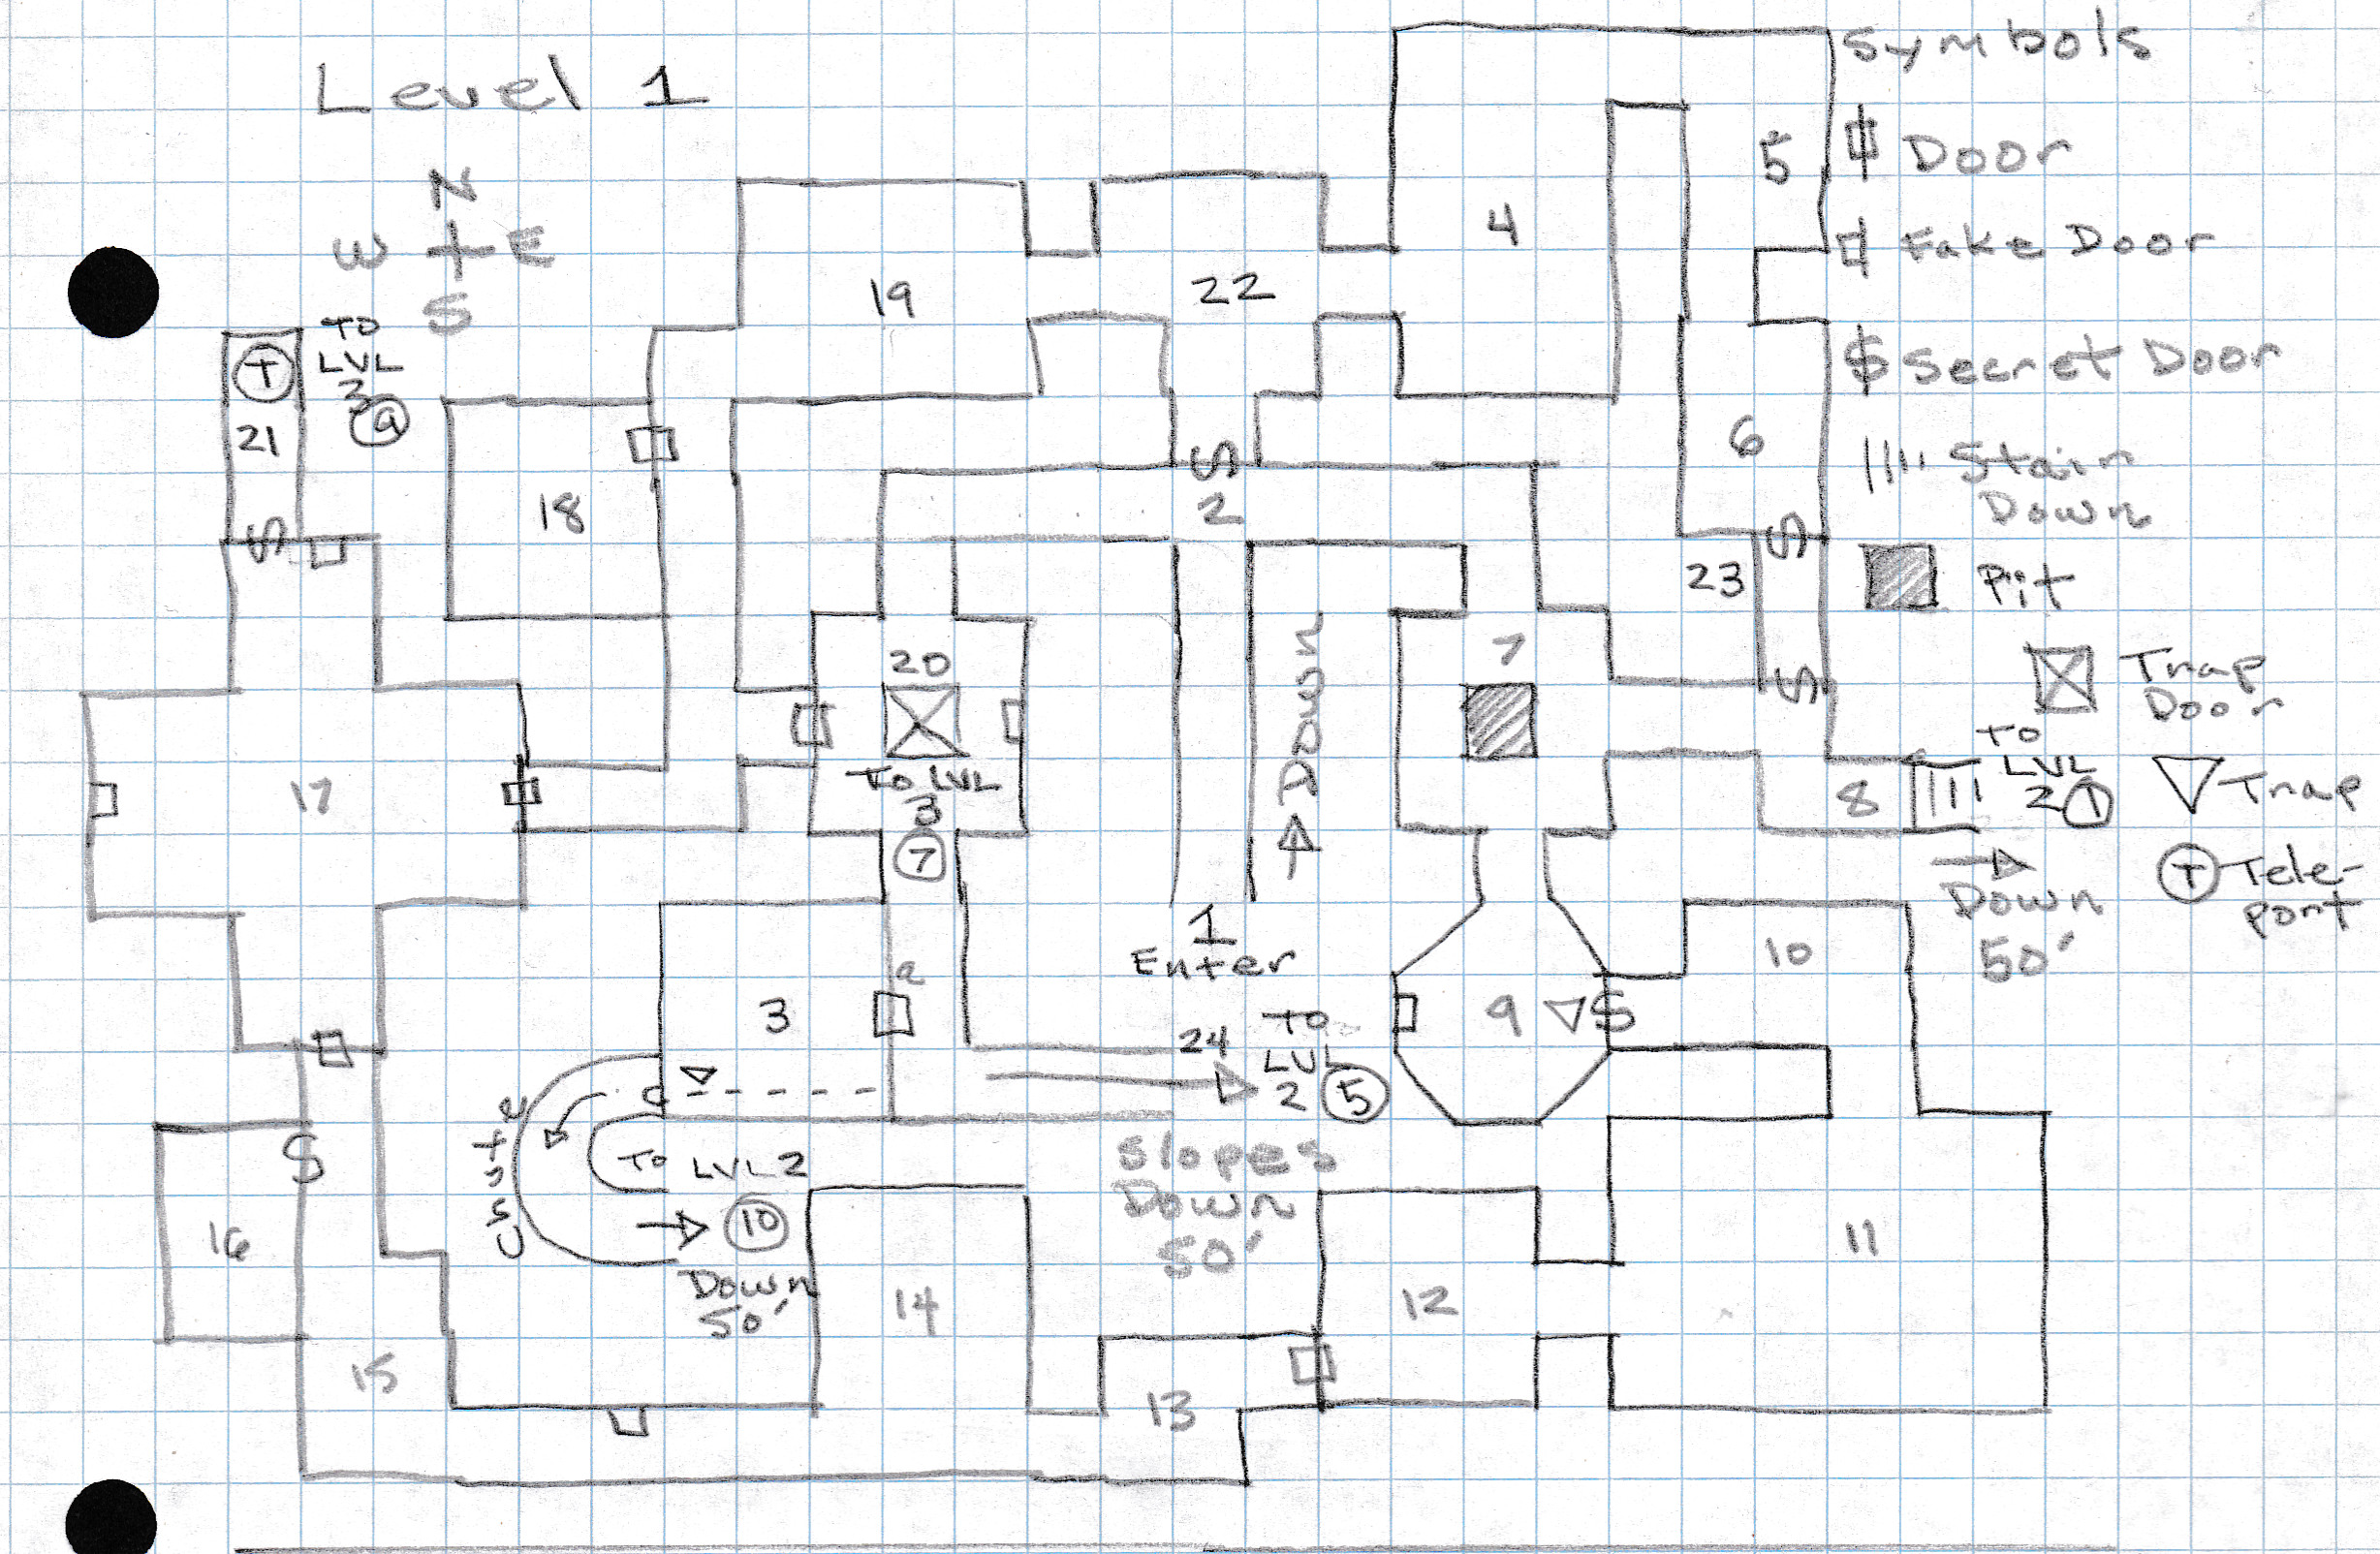 Level 1
N
W E
S
Symbols
Door
Fake Door
Secret Door
Stair
Down
Pit
Trap
Door
Trap
Tele-
port
T
TO
LVL
3
9
21
S
18
19
22
4
5
6
S
2
23
S
S
20
TO LVL
3
7
Down
7
8
TO
LVL
2 1
Down
50'
17
1
Enter
3
2
24
TO
LVL
2 5
Slopes
Down
50'
9 S
10
11
12
13
14
15
16
S
Chute
TO LVL 2
10
Down
50'